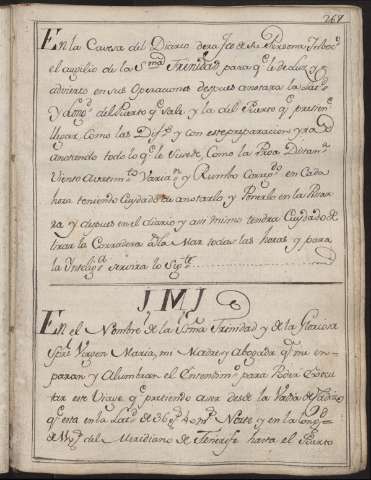 267
En la Cavesa del Diario dera fee de su Persona Inboco
el auxilio de la Sma. Trinidad para qe. le de luz, y
advierto en sus Operaciones despues anotara la Latd.
y Longd. del Puerto qe. sale y la del Puerto qe. preten
llegar, Como las Difs. y con este preparacion yra
anotando todo lo qe. le Susede, Como la Proa Distan
Viento Avatimto. Variasn. y Rumbo Corregdo. en Cada
hora teniendo Cuydado de anotarlo, y Ponerlo en la Pisar
ra y despues en el diario, y asi mismo tendra Cuydado de
tirar la Corredera a la Mar todas las horas y para
la Inteliga. servira lo Sigte.
J M J
En el Nombre de la Sma. Trinidad y de la Gloriosa
Spre. Virgen Maria, mi Madre y Abogada qe. me en-
paran y Alumbran el Entendimto. para Poder Execu
tar este Viaxe qe. pretendo aser desde la Vaia de Cadiz
qe. esta en la Latd. de 36 gs. 40 ms. Norte y en la Longd.
de gs. del Meridiano de Tenerife hasta el Puerto